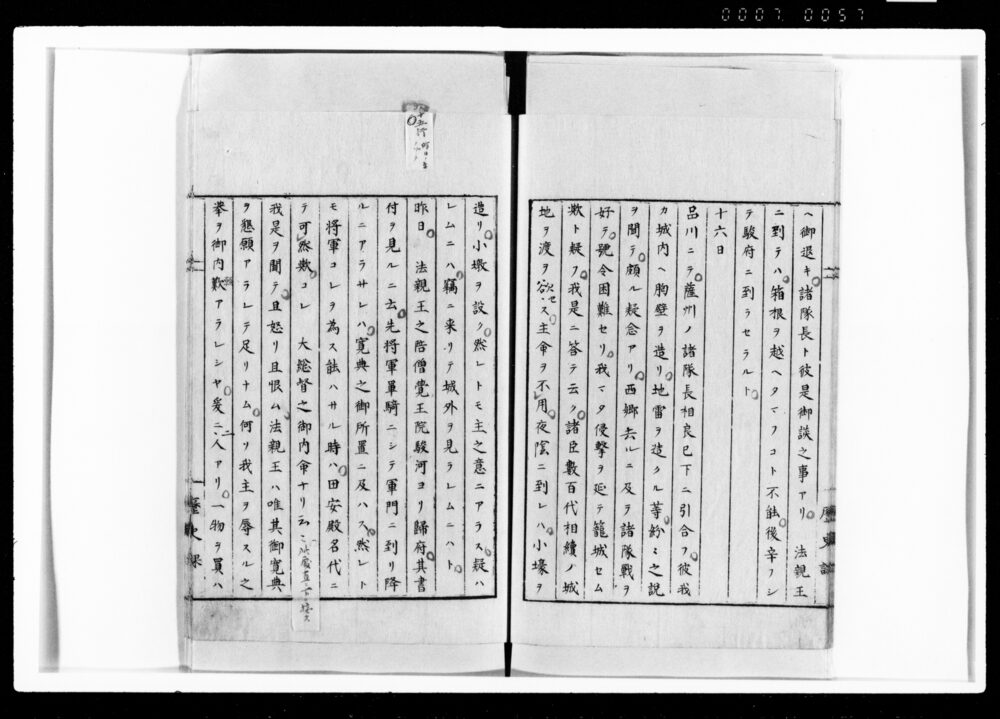 0007 0057
ヘ御退キ諸隊長ト彼是御談之事アリ　法親王
ニ到テハ箱根ヲ越ヘタマフコト不能後辛フシ
テ駿府ニ到ラセラルト
十六日
品川ニテ薩州ノ諸隊長相良已下ニ引合フ彼我
カ城内ヘ胸壁ヲ造リ地雷ヲ造クル等紛々之説
ヲ聞テ頗ル疑念アリ西郷去ルニ及ヲ諸隊戦ヲ
好テ號令困難セリ我マタ侵撃ヲ延テ籠城セム
欺ト疑フ我是ニ答テ云ク諸臣數百代相續ノ城
地ヲ渡ヲ欲セス主命ヲ不用夜陰ニ到レハ小壕ヲ
造リ小墩ヲ設ク然レトモ主之意ニアラス疑ハ
レムニハ竊ニ来リテ城外ヲ見ラレムニハト
昨日　法親王之陪僧覚王院駿河ヨリ歸府其書
付ヲ見ルニ云先将軍單騎ニシテ軍門ニ到リ降
ルニアラサレハ寛典之御所置ニ及ハス然レト
モ将軍コレヲ為ス能ハサル時ハ田安殿名代ニ
テ可然歟コレ　大総督之御内命ナリ云々
我是ヲ聞テ且怒リ且恨ム法親王ハ唯其御寛典
ヲ懇願アラレテ足リナム何リ我主ヲ辱スル之
拳ヲ御内歎アラレシヤ爰ニ二人アリ一物ヲ買ハ
歴史課